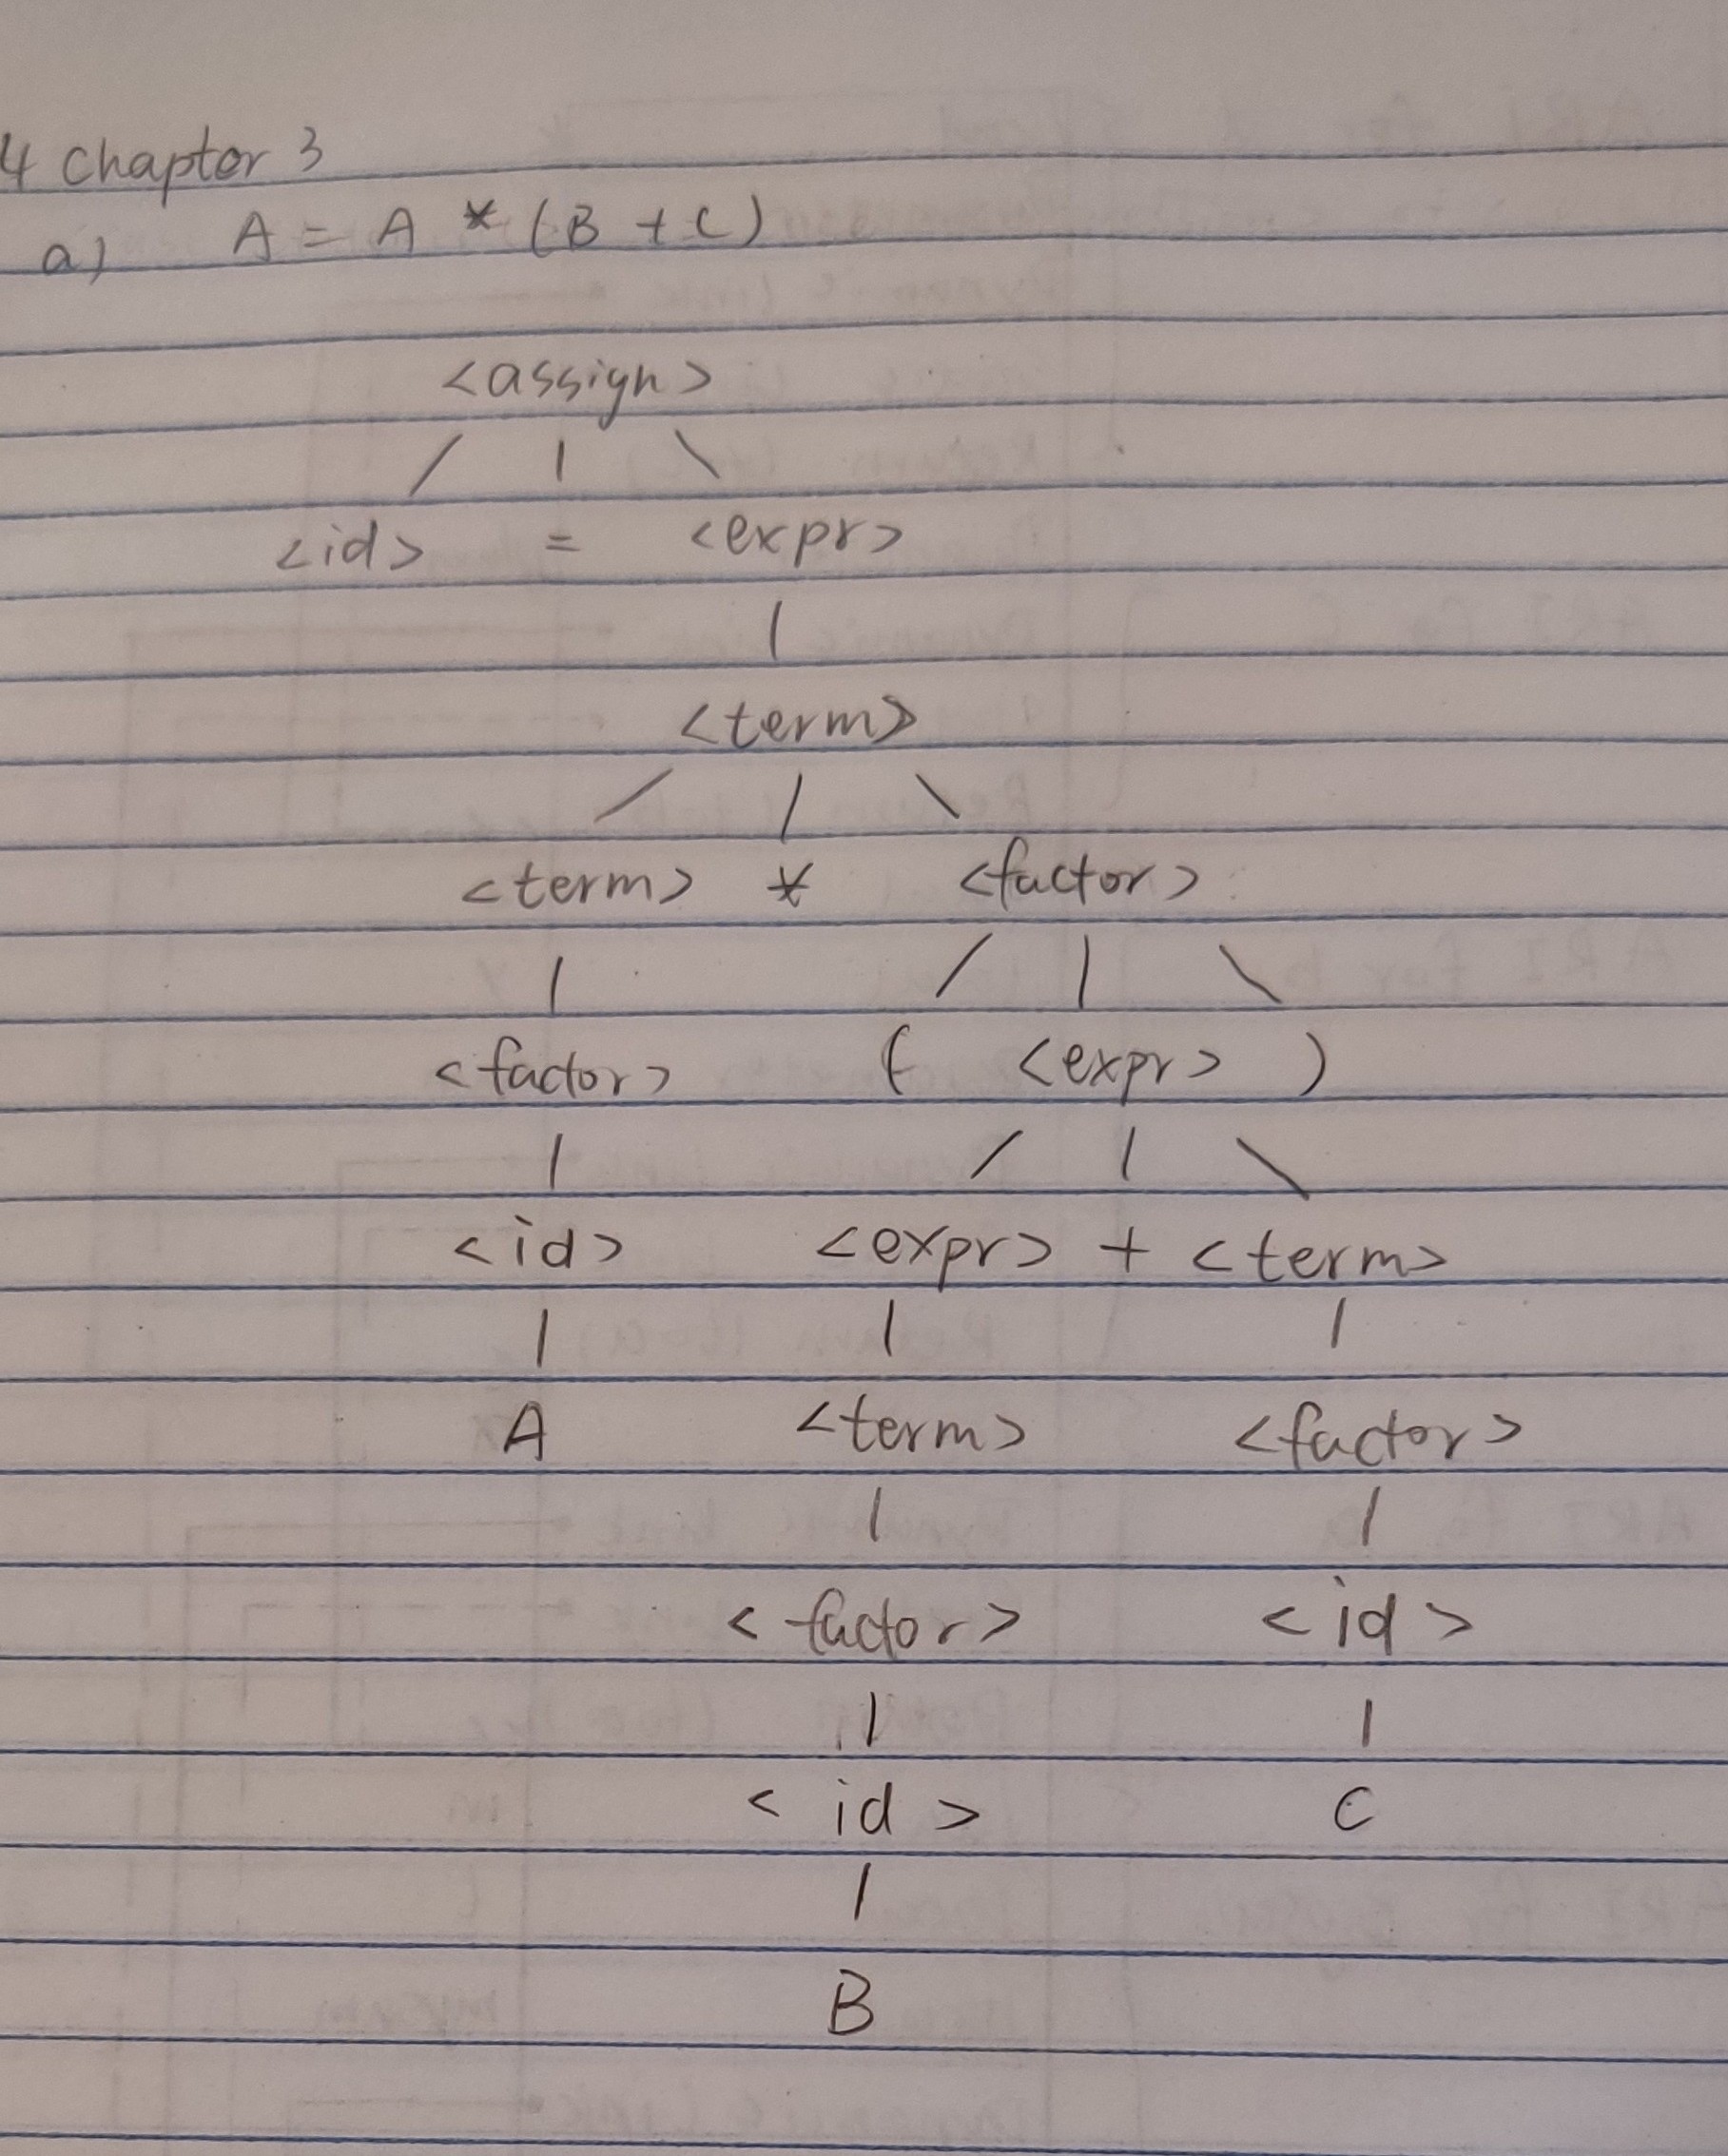 4 Chapter 3
a) A = A * (B + C)
<assign>
/ | \
<id> = <expr>
|
<term>
/ | \
<term> * <factor>
| / | \
<factor> ( <expr> )
| / | \
<id> <expr> + <term>
| | |
A <term> <factor>
| |
<factor> <id>
| |
<id> C
|
B